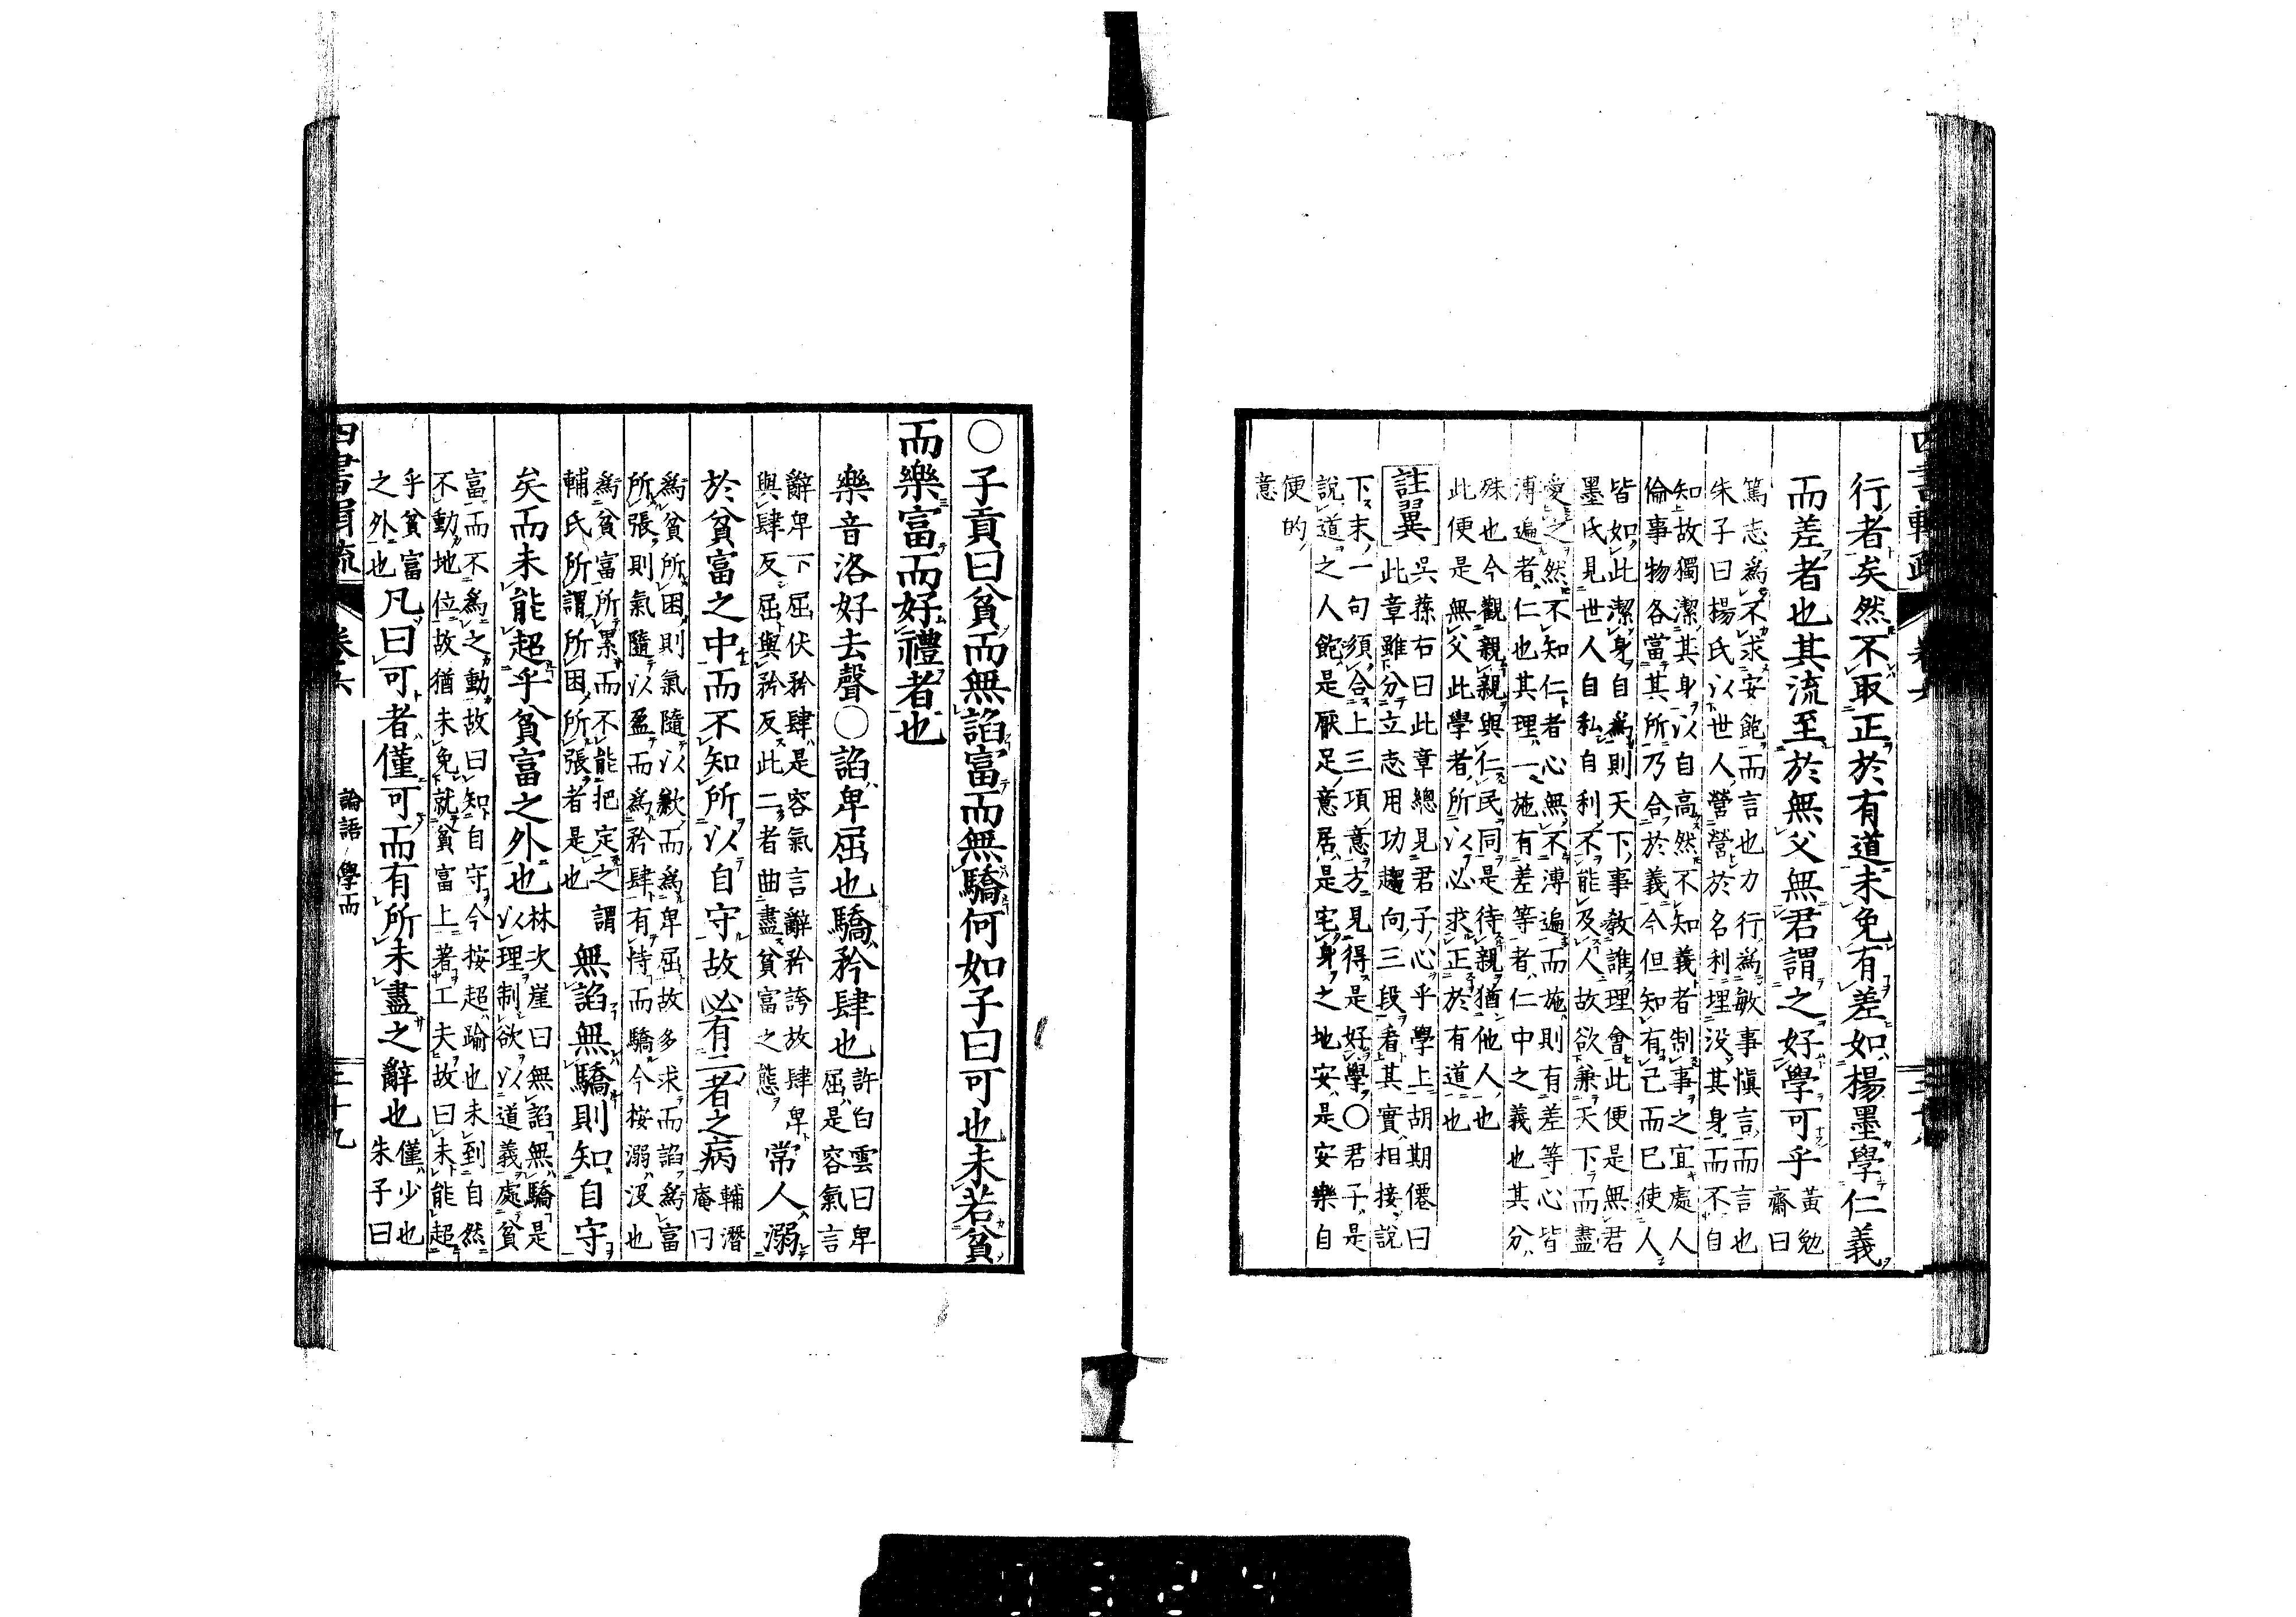 行者矣然不取正於有道未免有差如楊墨學仁義
而差者也其流至於無父無君謂之好學可乎黃勉
齋曰
篤志爲不求安飽而言也力行爲敏事愼言而言也
朱子曰楊氏以世人營營於名利埋没其身而不自
知故獨潔其身以自高然不知義者制事之宜處人
倫事物各當其所乃合於義今但知有己而已使人人
皆如此潔身自爲則天下事敎誰理會此便是無君
墨氏見世人自私自利不能及人故欲兼天下而盡
愛之然不知仁者心無不溥遍而施則有差等心皆
溥遍者仁也其理一施有差等者仁中之義也其分
殊也今觀親親與仁民同是待親猶他人也
此便是無父此學者所以必求正於有道也
註翼
吳蓀右曰此章總見君子心乎學上胡期僊曰
此章雖分立志用功趨向三段看其實相接說
下末一句須合上三項意方見得是好學〇君子是
說道之人飽是厭足意居是宅身之地安是安樂自
便的
意
〇子貢曰貧而無諂富而無驕何如子曰可也未若貧
而樂富而好禮者也
樂音洛好去聲〇諂卑屈也驕矜肆也許白雲曰卑
屈是容氣言
辭卑下屈伏矜肆是容氣言辭矜誇故肆卑
與肆反屈與矜反此二者曲盡貧富之態常人溺
於貧富之中而不知所以自守故必有二者之病輔潛
庵曰
爲貧所困則氣隨以歉而爲卑屈故多求而諂爲富
所張則氣隨以盈而爲矜肆有恃而驕今按溺没也
爲貧富所累而不能把定之謂
輔氏所謂所困所張者是也無諂無驕則知自守
矣而未能超乎貧富之外也林次崖曰無諂無驕是
以理制欲以道義處貧
富而不爲之動故曰知自守今按超踰也未到自然
不動地位故猶未免就貧富上著工夫故曰未能超
乎貧富
之外也凡曰可者僅可而有所未盡之辭也僅少也
朱子曰
論語 學而